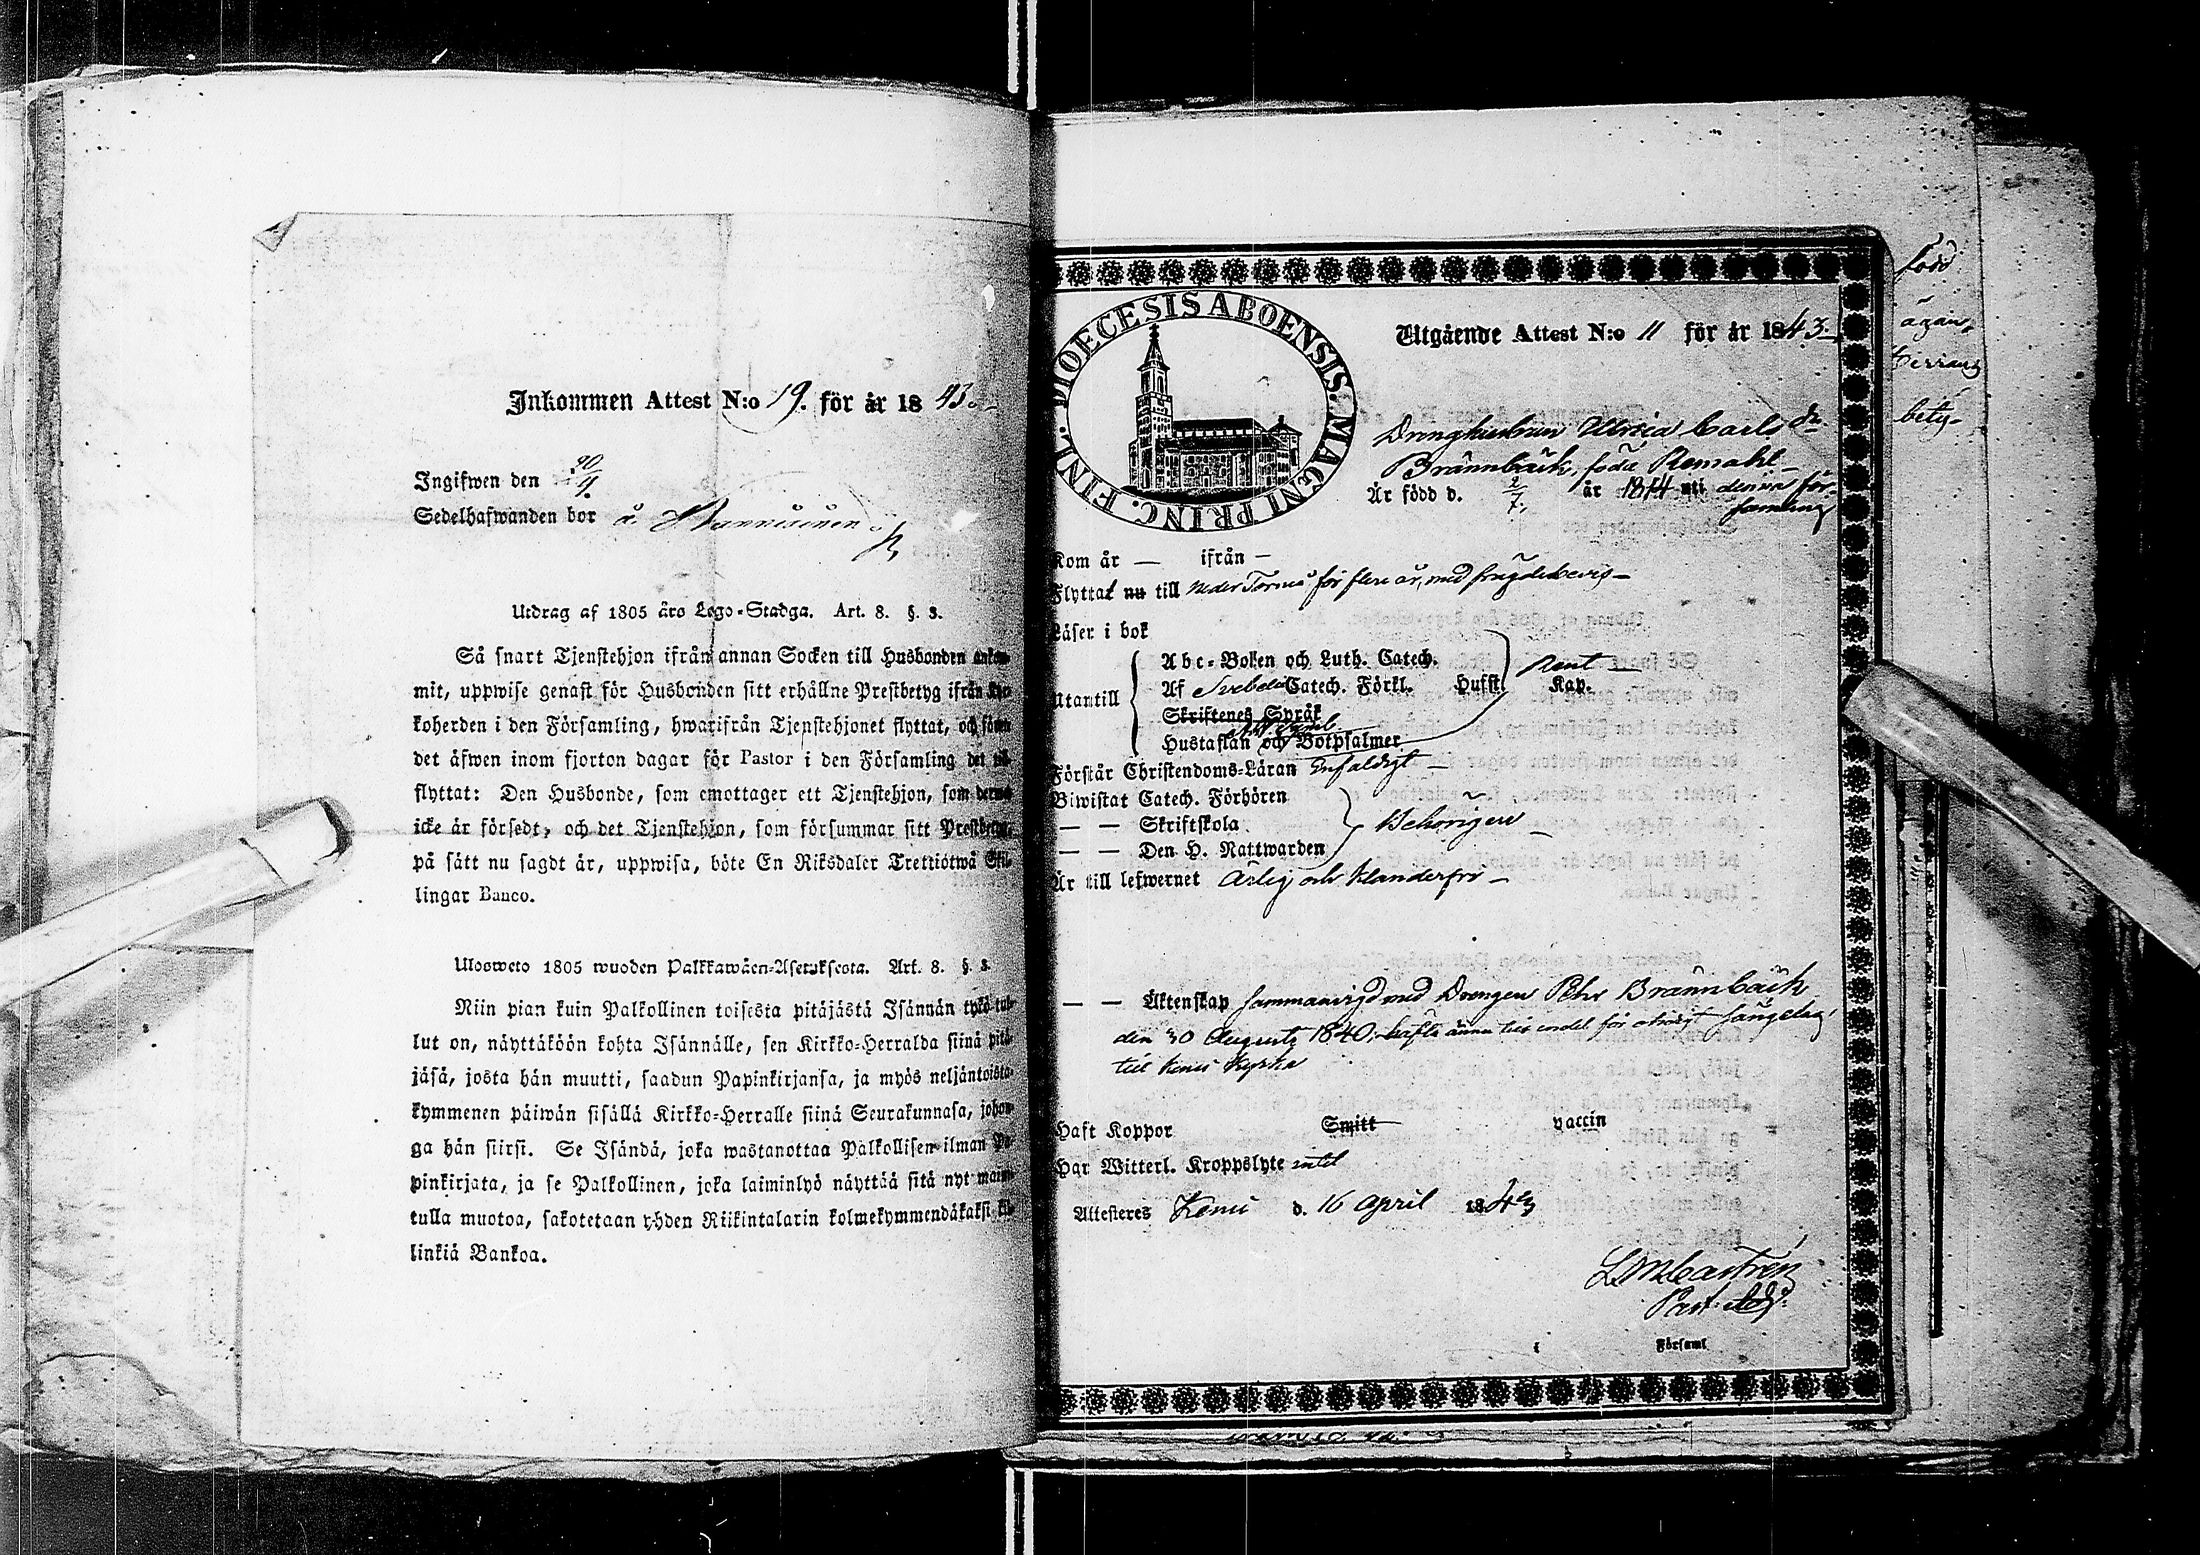 Inkommen Attest N:o 19. för år 1843.
Ingifwen den 20/4.
Sedelhafwanden bor å
Utdrag af 1805 års Lego-Stadga. Art. 8. §. 3.
Så snart Tjenstehjon ifrån annan Socken till Husbonden ankom-
mit, uppwise genast för Husbonden sitt erhållne Prestbetyg ifrån Kyr-
koherden i den Församling, hwarifrån Tjenstehjonet flyttat, och sam
det äfwen inom fjorton dagar för Pastor i den Församling det
flyttat: Den Husbonde, som emottager ett Tjenstehjon, som dermed
icke är försedt, och det Tjenstehjon, som försummar sitt Prestbetyg,
på sätt nu sagdt är, uppwisa, böte En Riksdaler Trettiotwå Skil-
lingar Banco.
Ulosweto 1805 wuoden Palkkawäen-Asetuksesta. Art. 8. §. 3.
Niin pian kuin Palkollinen toisesta pitäjästä Isännän tykö tul-
lut on, näyttäköön kohta Isännälle, sen Kirkko-Herralda siinä pitä-
jäsä, josta hän muutti, saadun Papinkirjansa, ja myös neljäntoista-
kymmenen päiwän sisällä Kirkko-Herralle siinä Seurakunnasa, johon-
ga hän siirsi. Se Isändä, joka wastanottaa Palkollisen ilman Pa-
pinkirjata, ja se Palkollinen, joka laiminlyö näyttää sitä nyt mainit-
tulla muotoa, sakotetaan yhden Riikintalarin kolmekymmendäkaksi kil-
linkiä Bankoa.
FINL. DIOECESIS ABOENSIS. MAGNI PRINC.
Utgående Attest N:o 11 för år 1843.
Drenghustrun Ulrica Carls dr
Brännbäck, född Remahl
Är född d. 2/7. år 1814 uti denna för-
samling
Kom år — ifrån —
Flyttat nu till Neder Torneå för flere år, med frägdebevis
Läser i bok
Abc-Boken och Luth. Catech.
Rent
Utantill
Af Svebelii Catech. Förkl. Husst. Kap.
Skriftenes Språk
Hustaflan och Botpsalmer
Förstår Christendoms-Läran Enfaldigt
Biwistat Catech. Förhören
— — Skriftskola
Behörigen
— — Den H. Nattwarden
Är till lefwernet Ärlig och klanderfri
— — Äktenskap sammanvigd med Drengen Pehr Brännbäck
den 30 Augusti 1840; häfta ännu till endel för otidigt sängelag,
till Kemi Kyrka
Haft Koppor Smitt vaccin
Har Witterl. Kroppslyte intet
Attesteres Kemi d. 16 April 1843
LMCastrén
Past: Adj:
Församl
född
bety-